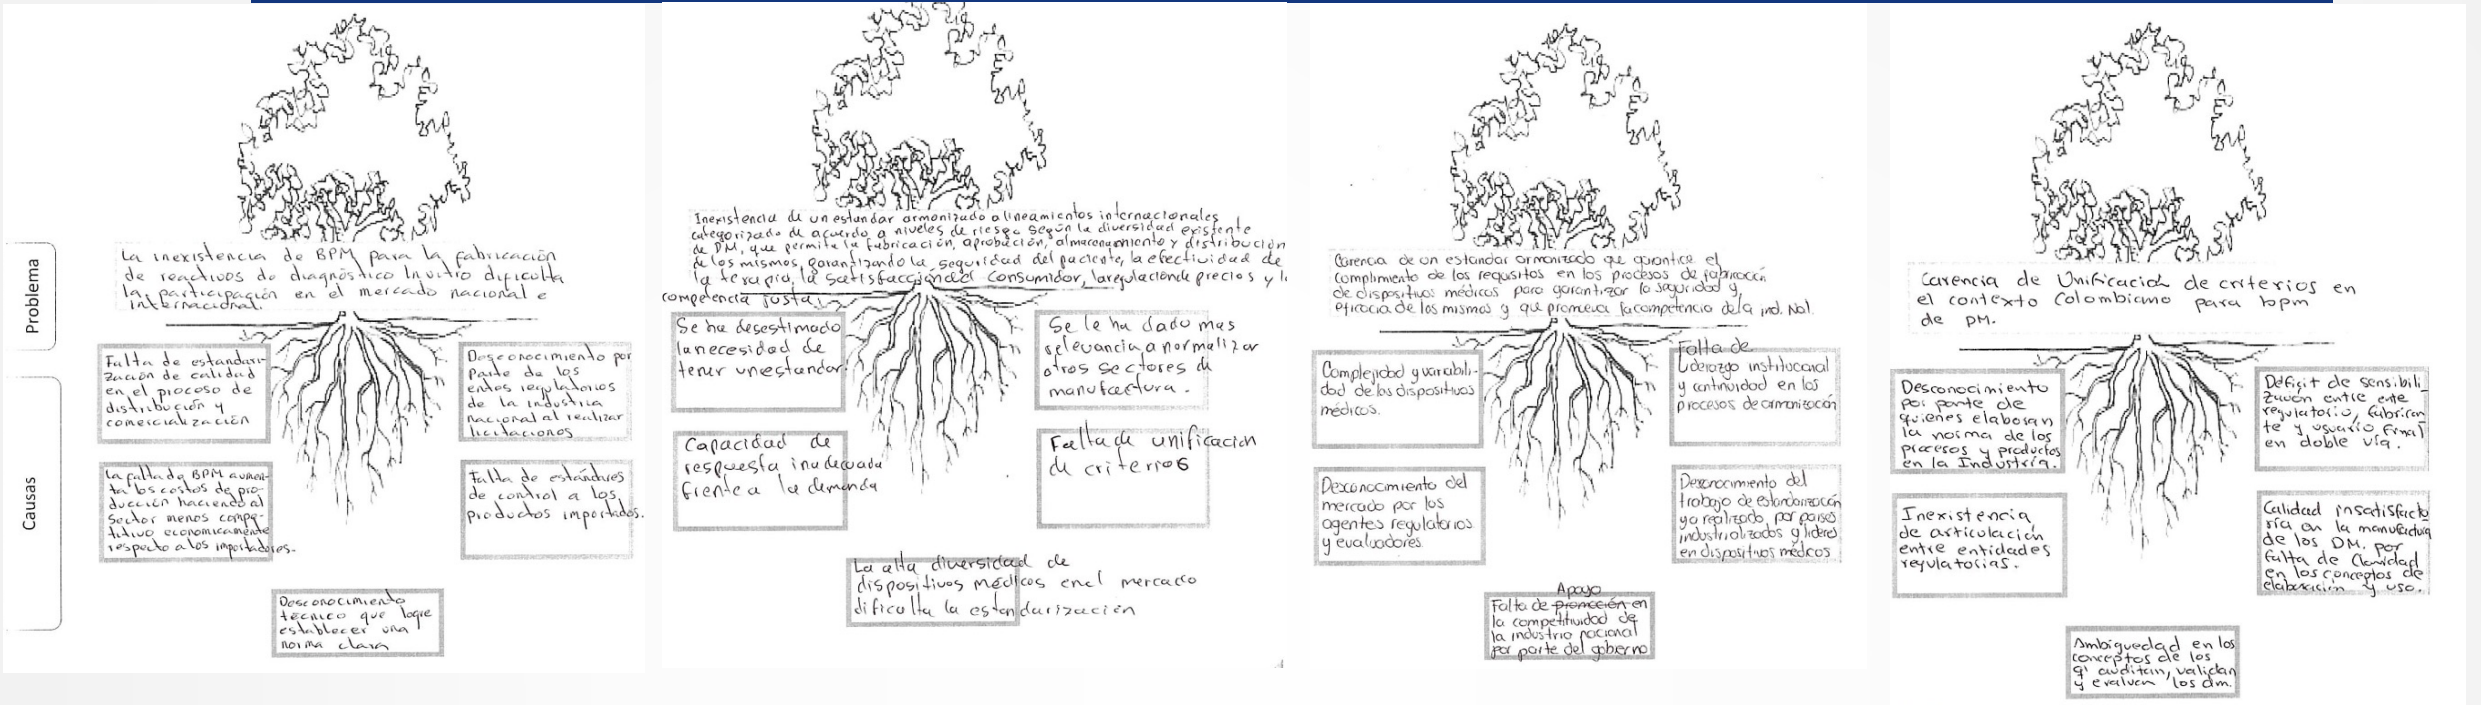 Problema
Causas
La inexistencia de BPM para la fabricación
de reactivos de diagnóstico Invitro dificulta
la participación en el mercado nacional e
internacional.
Falta de estandari-
zación de calidad
en el proceso de
distribución y
comercialización
Desconocimiento por
parte de los
entes regulatorios
de la industria
nacional al realizar
licitaciones
La falta de BPM aumen-
ta los costos de pro-
ducción haciendo al
sector menos compe-
titivo economicamente
respecto a los importadores.
Falta de estándares
de control a los
productos importados.
Desconocimiento
técnico que logre
establecer una
norma clara
Inexistencia de un estandar armonizado a lineamientos internacionales
categorizado de acuerdo a niveles de riesgo según la diversidad existente
de DM, que permita la fabricación, aprobación, almacenamiento y distribución
de los mismos, garantizando la seguridad del paciente, la efectividad de
la terapia, la satisfacción del consumidor, la regulación de precios y l
competencia justa.
Se ha desestimado
la necesidad de
tener un estandar.
Se le ha dado mas
relevancia a normalizar
otros sectores de
manufactura.
Capacidad de
respuesta inadecuada
frente a la demanda
Falta de unificacion
de criterios
La alta diversidad de
dispositivos médicos en el mercado
dificulta la estandarización
Carencia de un estandar armonizado que garantice el
complimiento de los requisitos en los procesos de fabricación
de dispositivos médicos para garantizar la seguridad y
eficacia de los mismos y que promueva la competencia de la ind. Nal.
Complejidad y variabili-
dad de los dispositivos
médicos.
Falta de
Liderazgo institucional
y continuidad en los
procesos de armonización
Desconocimiento del
mercado por los
agentes regulatorios
y evaluadores
Desconocimiento del
trabajo de estandarización
ya realizado por países
industrializados y lideres
en dispositivos médicos
Apoyo
Falta de promoción en
la competitividad de
la industria nacional
por parte del gobierno
Carencia de Unificación de criterios en
el contexto Colombiano para bpm
de DM.
Desconocimiento
por parte de
quienes elaboran
la norma de los
procesos y productos
en la Industria.
Déficit de sensibili-
zación entre ente
regulatorio, fabrican
te y usuario final
en doble vía.
Inexistencia
de articulación
entre entidades
regulatorias.
Calidad insatisfacto
ria en la manufactura
de los DM. por
falta de Claridad
en los conceptos de
elaboración y uso.
Ambiguedad en los
conceptos de los
q' auditan, validan
y evaluen los dm.